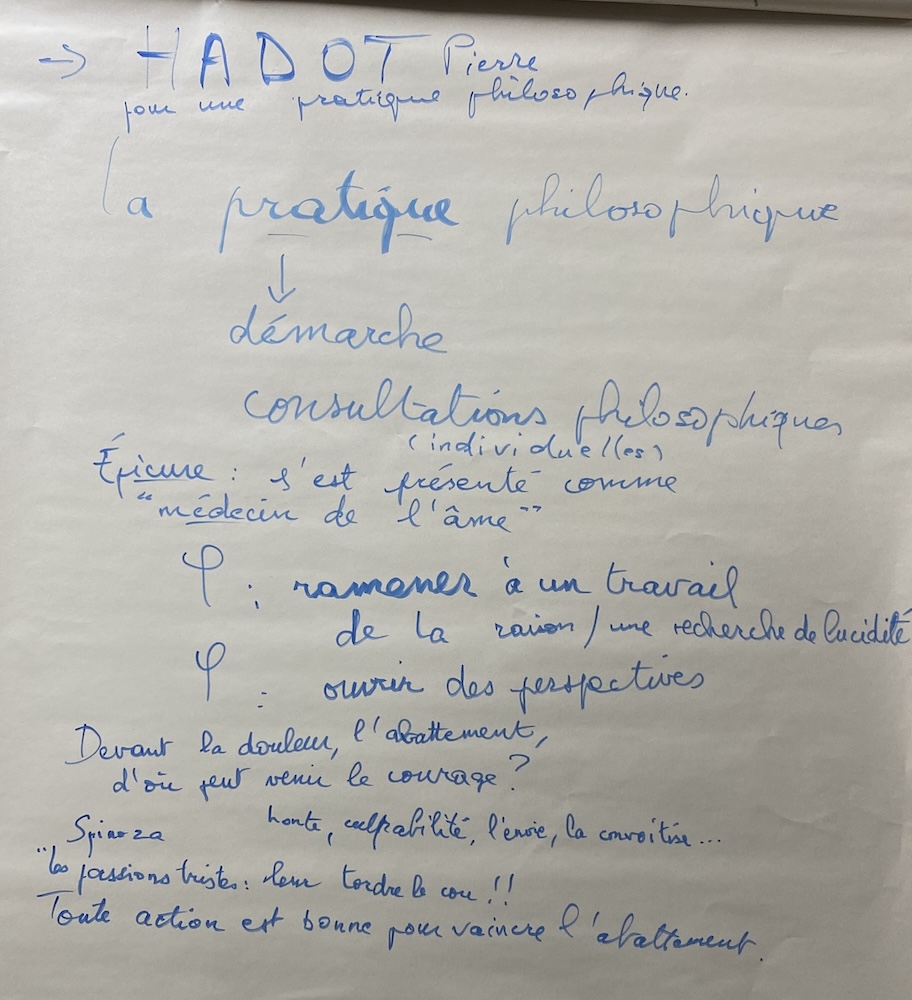 → HADOT Pierre
pour une pratique philosophique.
La pratique philosophique
↓
démarche
consultations philosophiques
(individuelles)
Épicure : s'est présenté comme
"médecin de l'âme"
φ : ramener à un travail
de la raison / une recherche de lucidité
φ : ouvrir des perspectives
Devant la douleur, l'abattement,
d'où peut venir le courage ?
honte, culpabilité, l'envie, la convoitise...
Spinoza
"les passions tristes : leur tordre le cou !!
Toute action est bonne pour vaincre l'abattement.